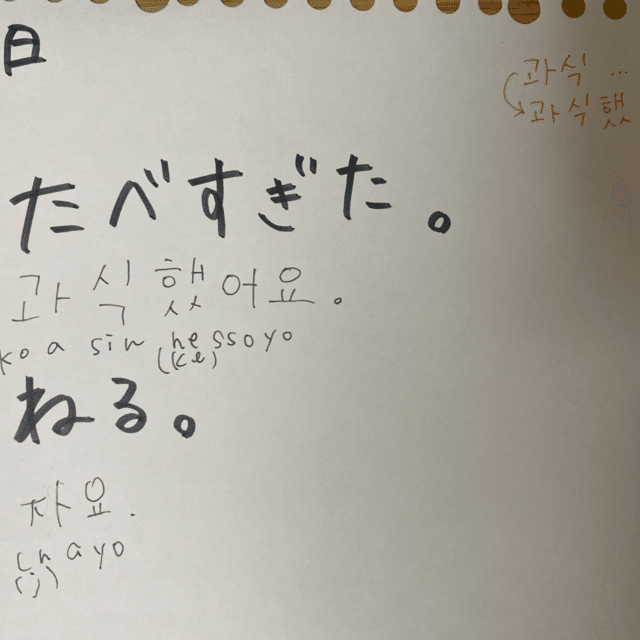 日
과식 …
과식했
たべすぎた。
과식했어요.
koa sik hessoyo
(ke)
ねる。
자요.
chayo
(j)